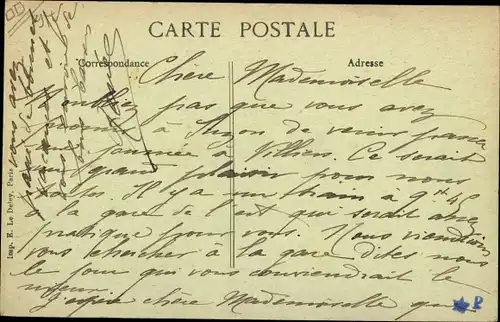 CARTE POSTALE
Correspondance
Adresse
Chère Mademoiselle
N'oubliez pas que vous avez
promis à Suzon de venir passer
une journée à Villiers. Ce serait
un grand plaisir pour nous
tous. Il y a un train à 9h 45
à la gare de l'est qui serait assez
pratique pour vous. Nous viendrions
vous chercher à la gare dites nous
le jour qui vous conviendrait le
mieux.
J'espère chère Mademoiselle que
vous avez
Imp. E. Le Deley, Paris
P